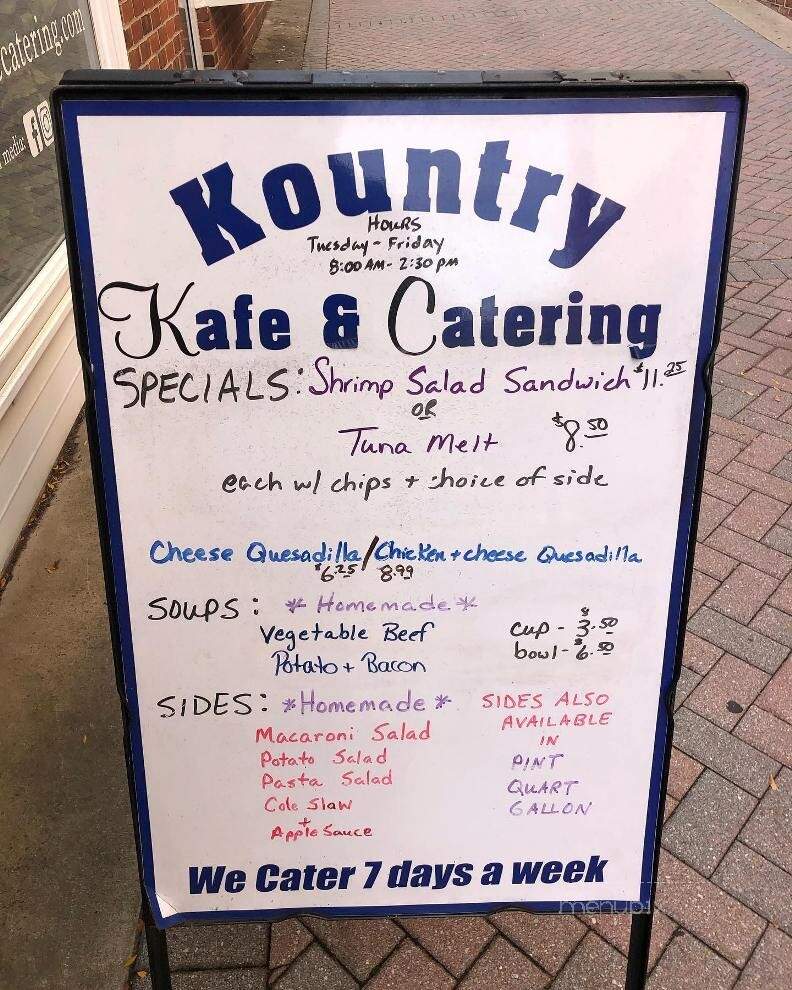 catering.com
media:
Kountry
HOURS
Tuesday - Friday
8:00 AM - 2:30 PM
Kafe & Catering
SPECIALS: Shrimp Salad Sandwich $11.25
OR
Tuna Melt $8.50
each w/ chips + choice of side
Cheese Quesadilla/Chicken + cheese Quesadilla
$6.25 8.99
SOUPS: * Homemade *
Vegetable Beef cup - $3.50
Potato + Bacon bowl - $6.50
SIDES: *Homemade * SIDES ALSO
AVAILABLE
Macaroni Salad IN
Potato Salad PINT
Pasta Salad QUART
Cole Slaw GALLON
+
Apple Sauce
We Cater 7 days a week